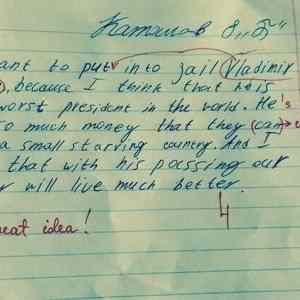 Каташов 8 „Б"
ant to put into jail Vladimir
, because I think that he is
worst president in the world. He's
so much money that they can
a small starving country. And I
that with his passing our
r will live much better.
4
eat idea!